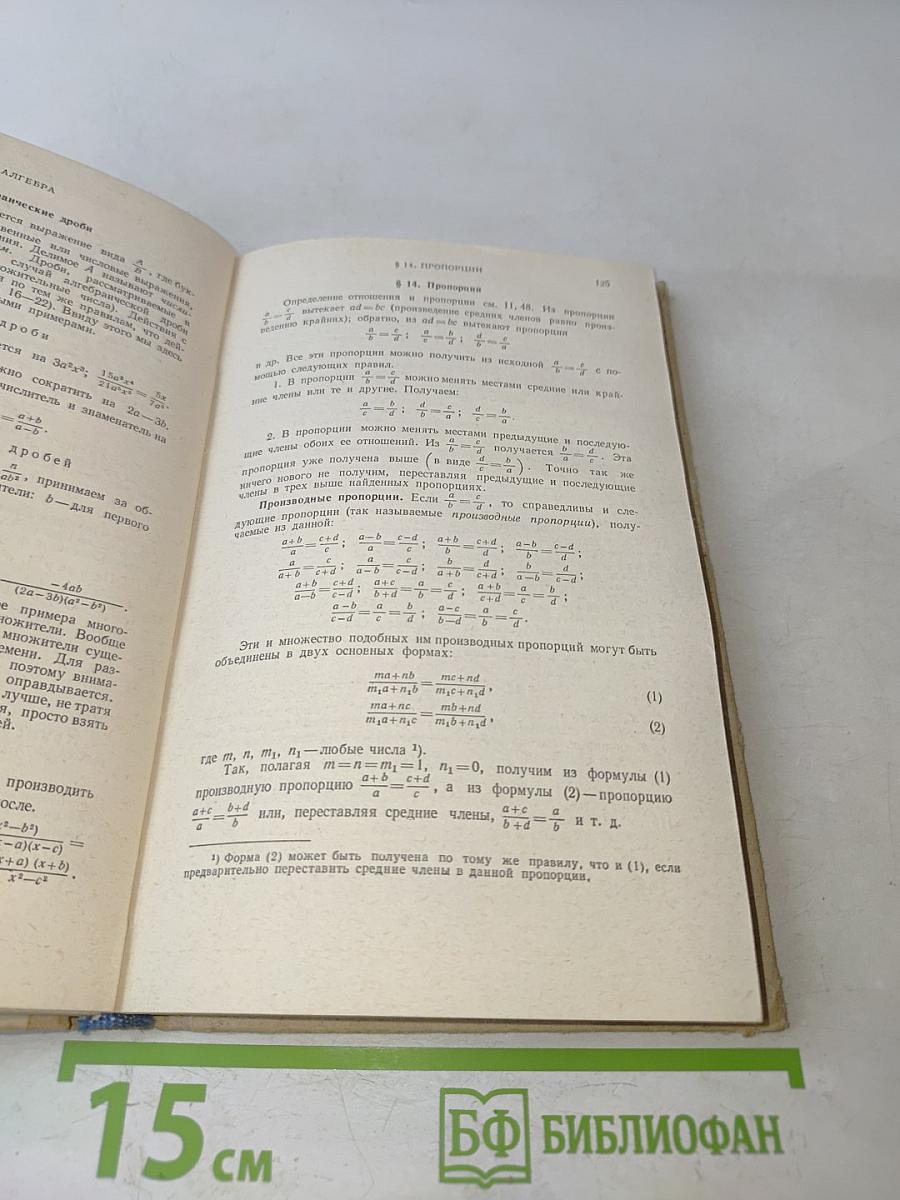 АЛГЕБРА
дроби
ется выражение вида A/B, где бук-
венные или числовые выражения.
ния. Делимое A называют числи-
м. Дроби, рассматриваемые в
случай алгебраической дроби
ожительные числа). Действия с
я по тем же правилам, что дей-
16—22). Ввиду этого мы здесь
ыми примерами.
дроби
ется на 3a²x³; 15a²x⁴/21a⁹x³ = 5x/7a⁷.
жно сократить на 2a—3b.
числитель и знаменатель на
= (a+b)/(a−b).
дробей
n/ab², принимаем за об-
ители: b—для первого
−4ab/((2a−3b)(a²−b²)).
е примера много-
ножители. Вообще
множители суще-
емени. Для раз-
поэтому внима-
оправдывается.
лучше, не тратя
я, просто взять
ей.
производить
осле.
²−b²)/(−a)(x−c) =
(x+a) (x+b)/(x²−c²).
§ 14. ПРОПОРЦИИ
125
§ 14. Пропорции
Определение отношения и пропорции см. II, 48. Из пропорции
a/b = c/d вытекает ad=bc (произведение средних членов равно произ-
ведению крайних); обратно, из ad=bc вытекают пропорции
a/b = c/d; a/c = b/d; d/b = c/a
и др. Все эти пропорции можно получить из исходной a/b = c/d с по-
мощью следующих правил.
1. В пропорции a/b = c/d можно менять местами средние или край-
ние члены или те и другие. Получаем:
a/c = b/d; d/b = c/a; d/c = b/a.
2. В пропорции можно менять местами предыдущие и последую-
щие члены обоих ее отношений. Из a/b = c/d получается b/a = d/c. Эта
пропорция уже получена выше (в виде d/c = b/a). Точно так же
ничего нового не получим, переставляя предыдущие и последующие
члены в трех выше найденных пропорциях.
Производные пропорции. Если a/b = c/d, то справедливы и сле-
дующие пропорции (так называемые производные пропорции), полу-
чаемые из данной:
(a+b)/a = (c+d)/c; (a−b)/a = (c−d)/c; (a+b)/b = (c+d)/d; (a−b)/b = (c−d)/d;
a/(a+b) = c/(c+d); a/(a−b) = c/(c−d); b/(a+b) = d/(c+d); b/(a−b) = d/(c−d);
(a+b)/(a−b) = (c+d)/(c−d); (a+c)/(b+d) = a/b = c/d; (a+b)/(c+d) = a/c = b/d;
(a−b)/(c−d) = a/c = b/d; (a−c)/(b−d) = a/b = c/d.
Эти и множество подобных им производных пропорций могут быть
объединены в двух основных формах:
(ma+nb)/(m₁a+n₁b) = (mc+nd)/(m₁c+n₁d), (1)
(ma+nc)/(m₁a+n₁c) = (mb+nd)/(m₁b+n₁d), (2)
где m, n, m₁, n₁—любые числа ¹).
Так, полагая m=n=m₁=1, n₁=0, получим из формулы (1)
производную пропорцию (a+b)/a = (c+d)/c, а из формулы (2)—пропорцию
(a+c)/a = (b+d)/b или, переставляя средние члены, (a+c)/(b+d) = a/b и т. д.
¹) Форма (2) может быть получена по тому же правилу, что и (1), если
предварительно переставить средние члены в данной пропорции.
15 см
БФ БИБЛИОФАН